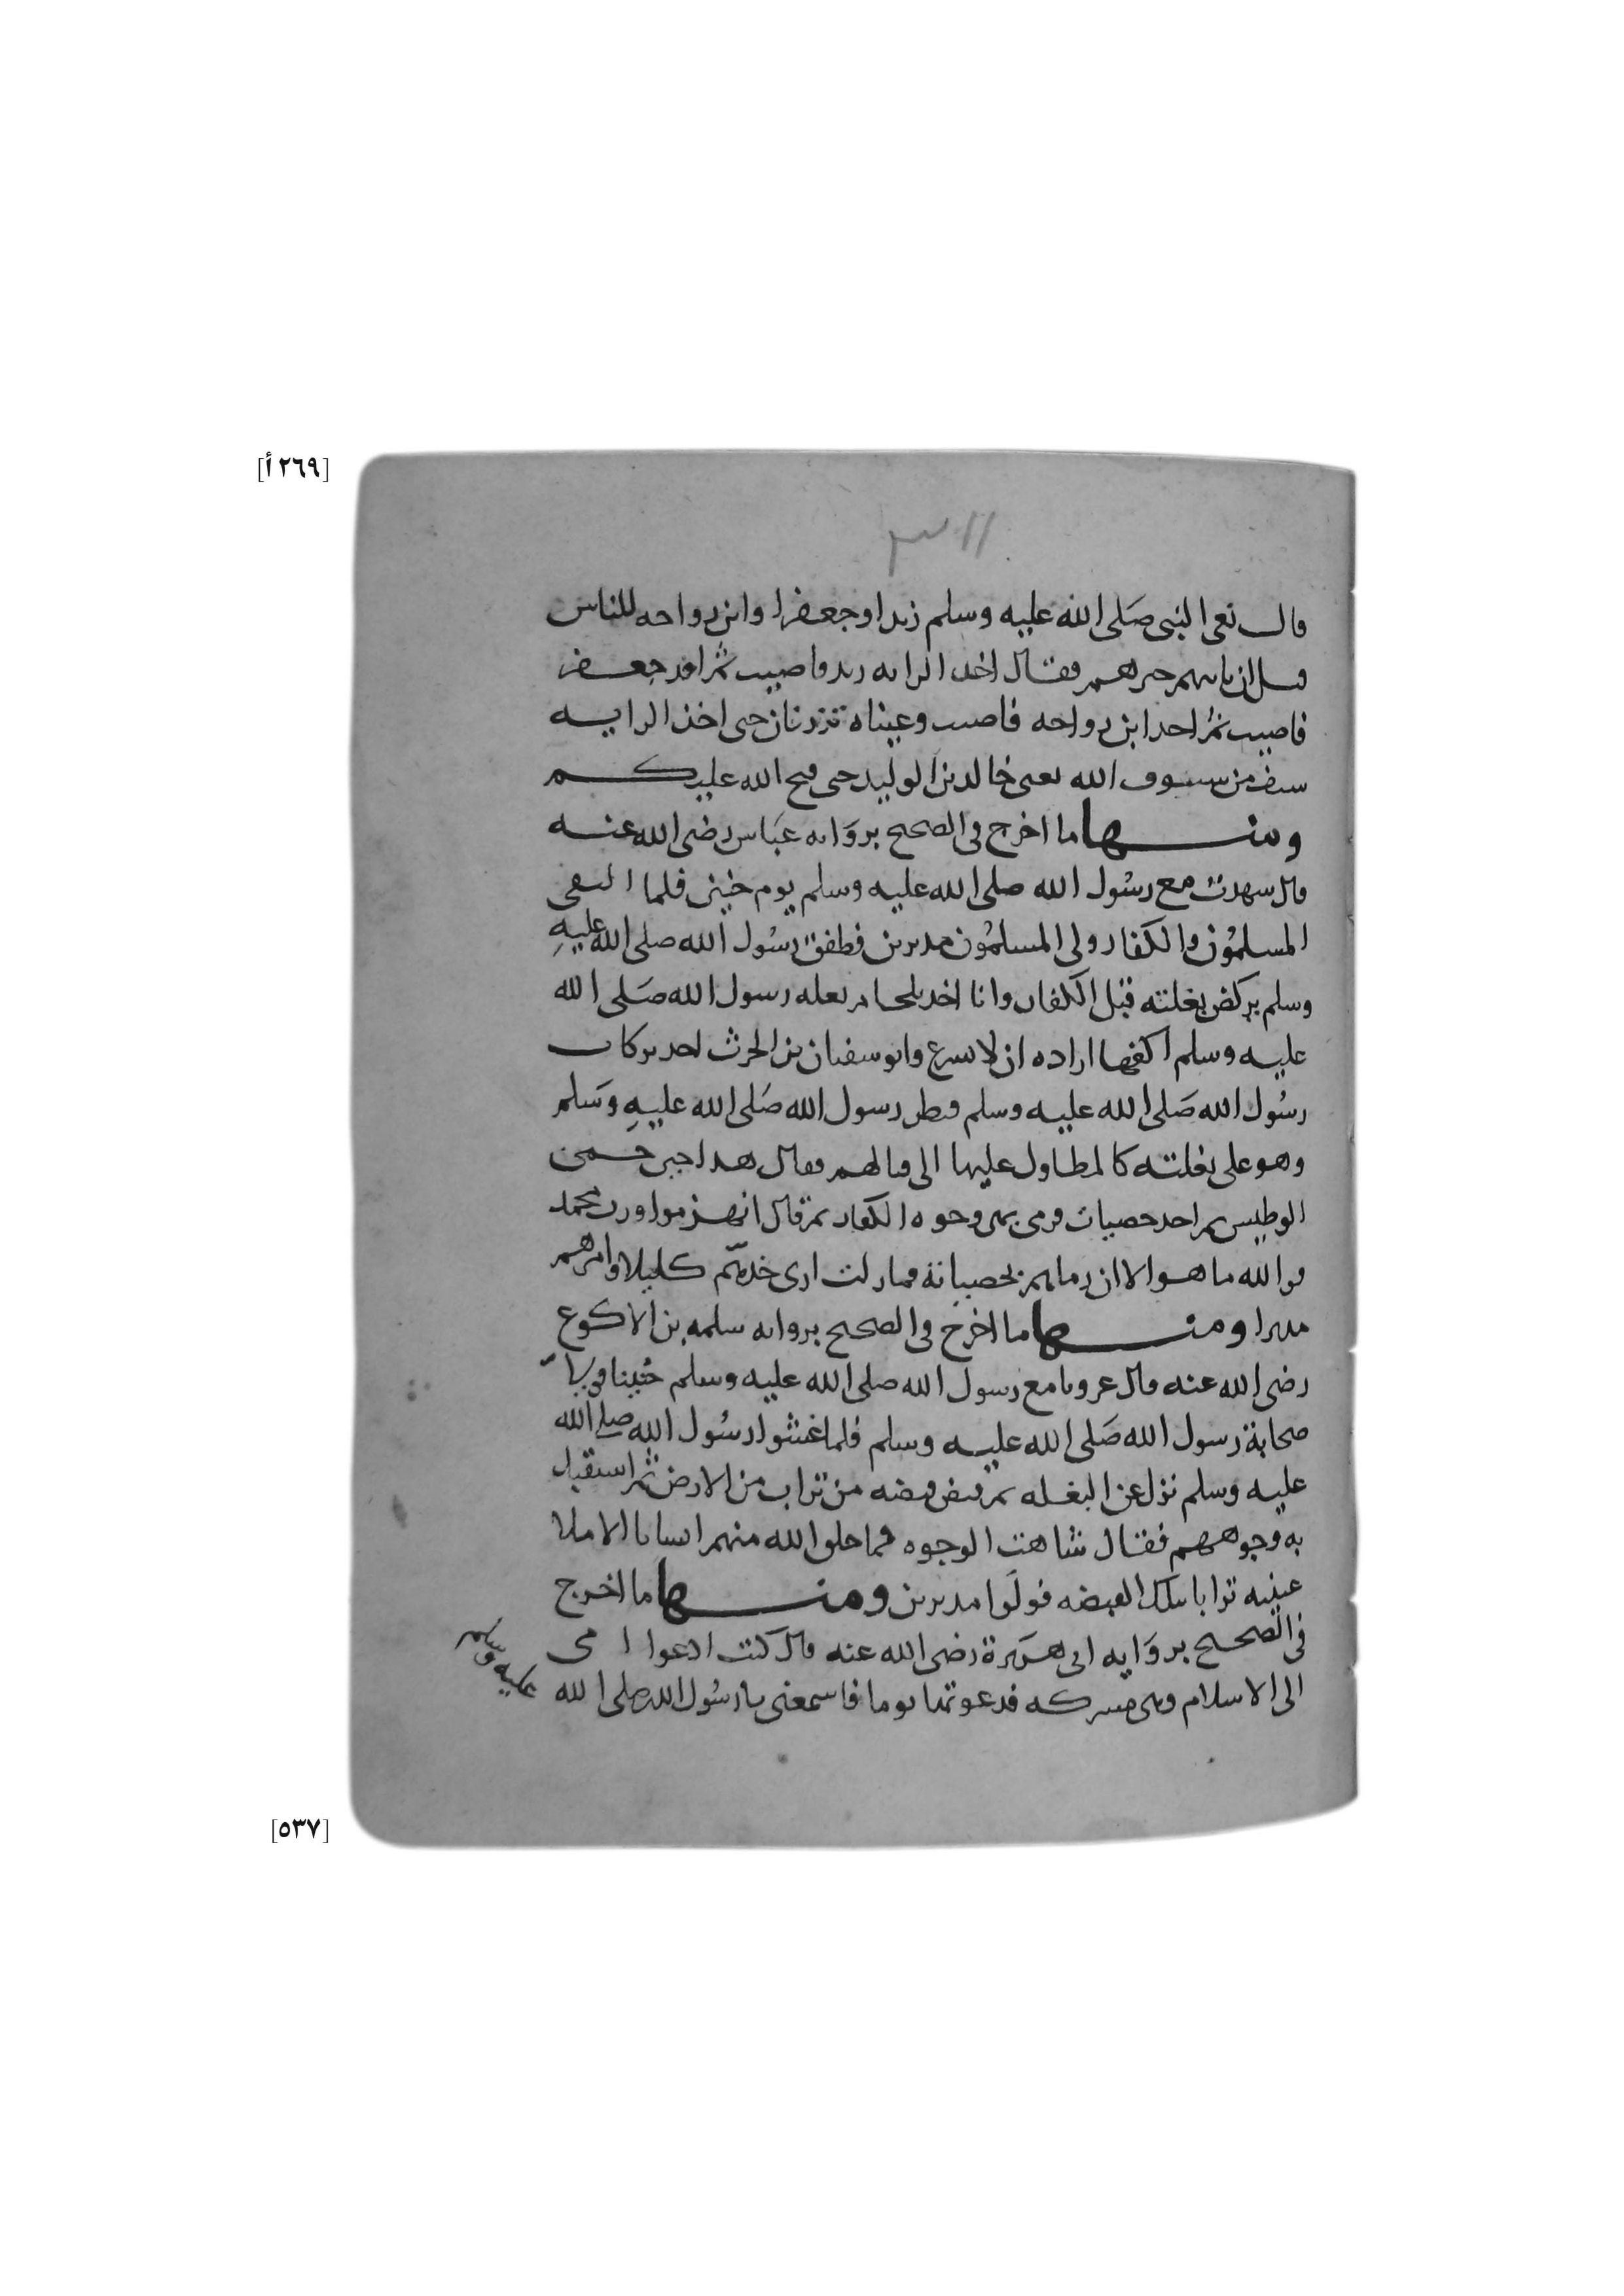 [٢٦٩ أ]
٣١١
قال نعى النبي صَلى الله عليه وسلم زيدا وجعفرا وابن رواحه للناس
قبل ان ياتيهم خبرهم فقال اخذ الرايه زيد فاصيب ثم اخذ جعفر
فاصيب ثم اخذ ابن رواحه فاصيب وعيناه تذرفان حتى اخذ الرايه
سيف من سيوف الله يعني خالد بن الوليد حتى فتح الله عليهم
ومنها ما اخرج في الصحيح بروَايه عَباس رضى الله عنه
قال شهدت مع رسُول الله صلى الله عليه وسلم يوم حنين فلما التقى
المسلمُون والكفار ولى المسلمُون مدبرين فطفق رسُول الله صلى الله عليهِ
وسلم يركض بغلته قبل الكفار وانا اخذ بلجام بغله رسول الله صَلى الله
عليه وسلم اكفها اراده ان لا تسرع وابو سفيان بن الحرث اخذ بركاب
رسُول الله صَلى الله عليه وسلم فنظر رسول الله صَلى الله عليهِ وَسَلم
وهو على بغلته كالمتطاول عليها الى قتالهم فقال هذا حين حمى
الوطيس ثم اخذ حصيات فرمى بهن وجوه الكفار ثم قال انهزموا ورب محمد
فوالله ما هو الا ان رماهم بحصياته فما زلت ارى حدهم كليلا وامرهم
مدبرا ومنها ما اخرج في الصحيح بروايه سلمه بن الاكوع
رضى الله عنه قال غزونا مع رسول الله صلى الله عليه وسلم حُنينا فولى
صحابة رسول الله صَلى الله عليه وسلم فلما غشوا رسُول الله صلى الله
عليه وسلم نزل عن البغله ثم قبض قبضه من تراب من الارض ثم استقبل
به وجوههم فقال شاهت الوجوه فما خلق الله منهم انسانا الا ملا
عينيه ترابا بتلك القبضه فولَوا مدبرين ومنها ما اخرج
في الصحيح بروَايه ابى هرَيرة رضى الله عنه قال كنت ادعوا امى
الى الاسلام وهى مشركه فدعوتها يوما فاسمعنى يا رسُول الله صلى الله
عليه وسلم
[٥٣٧]